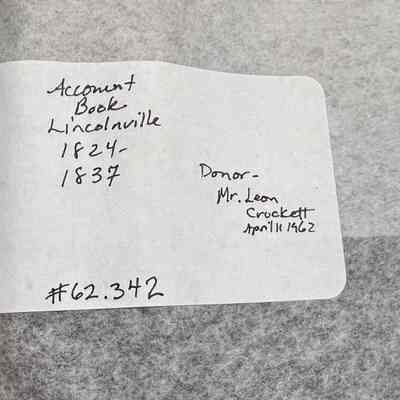 Account
Book
Lincolnville
1824-
1837
Donor-
Mr. Leon
Crockett
April 11 1962
#62.342